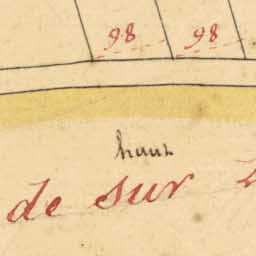 98 98
haut
de sur